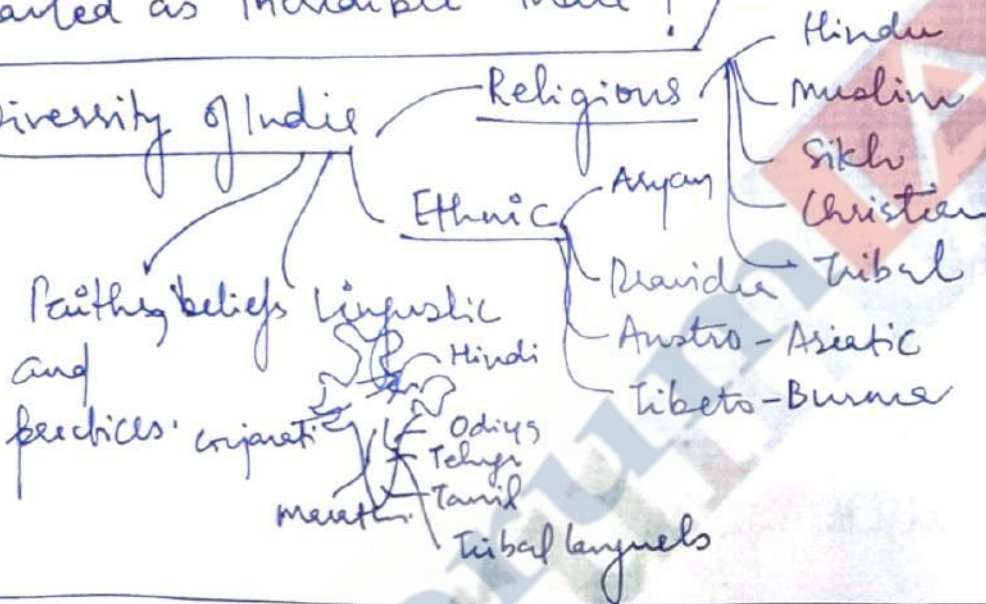 as Incredible India !
Diversity of India
Religious
Hindu
Muslim
Sikh
Christian
Tribal
Ethnic
Aryan
Dravidia
Austro - Asiatic
Tibeto - Burma
Faiths, beliefs
and
practices.
Linguistic
Hindi
Gujarati
Odiya
Telugu
Tamil
Marathi
Tribal languels